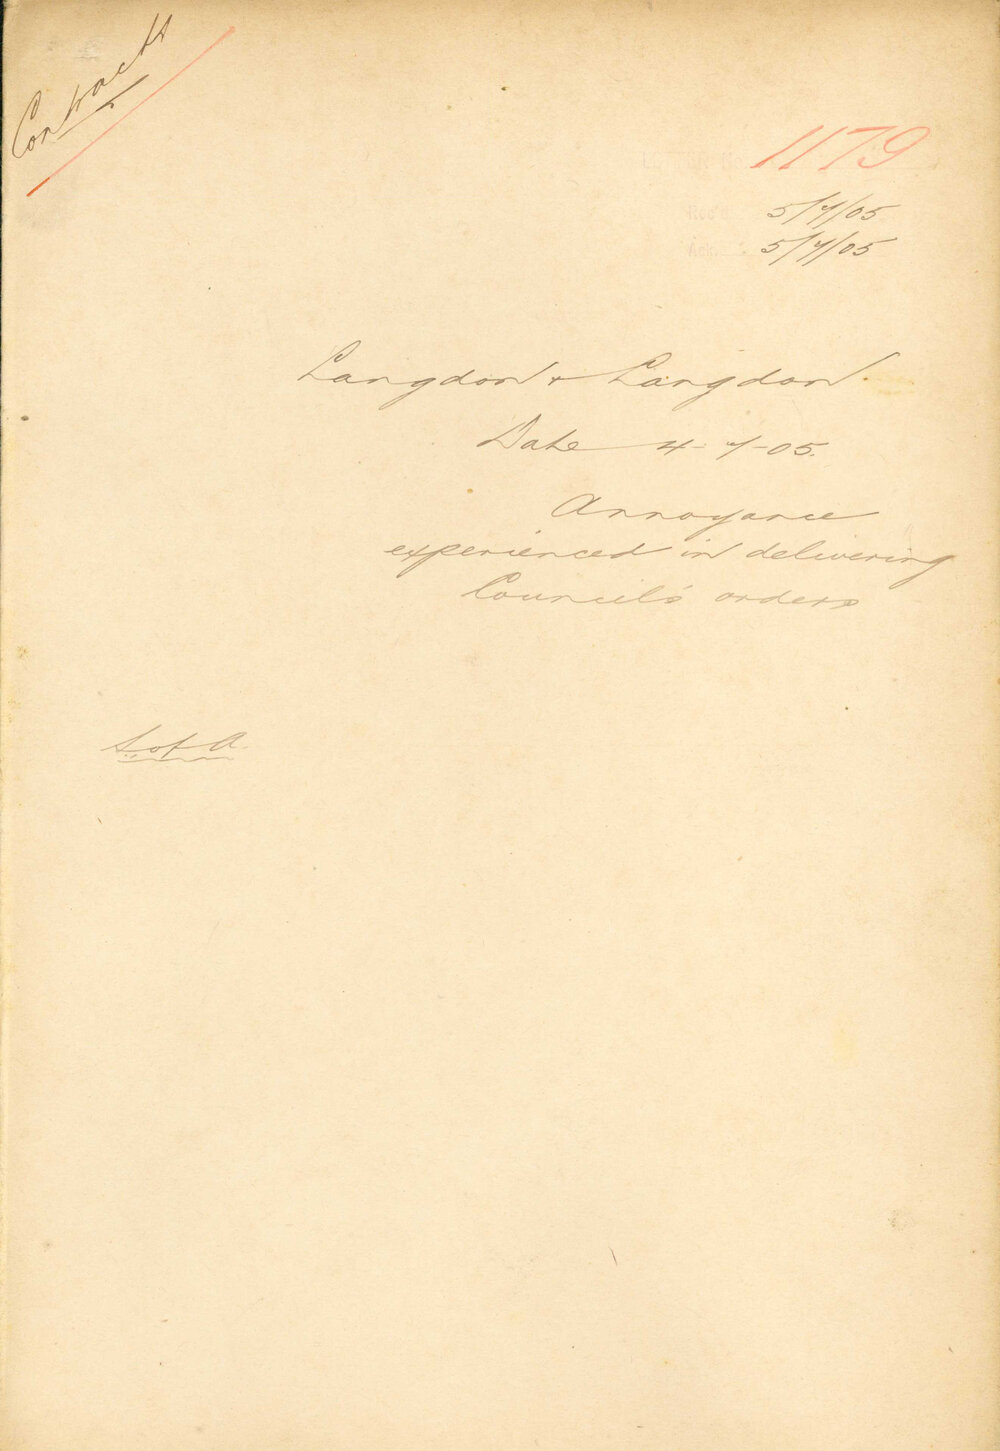 Contracts
1179
Rec'd 5/7/05
Ack. 5/7/05
Langdon & Langdon
Date 4-7-05.
Annoyance
experienced in delivering
Council's orders